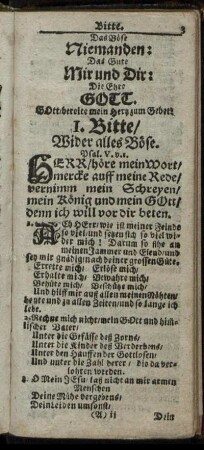 Bitte.
3
Das Böse
Niemanden:
Das Gute
Mir und Dir:
Die Ehre
GOTT.
GOtt/bereite mein Hertz zum Gebett
I. Bitte/
Wider alles Böse.
Psal. V. v.1.
HERR/höre mein Wort/
mercke auff meine Rede/
vernimm mein Schreyen/
mein König und mein GOtt/
denn ich will vor dir beten.
ACh HErr/wie ist meiner Feinde
so viel/und setzen sich so viel wi-
der mich! Darum so sihe an
meinen Jammer und Elend/und
sey mir gnädig nach deiner grossen Güte.
Errette mich! Erlöse mich/
Erhalte mich! Bewahre mich/
Behüte mich! Beschütze mich/
Und hilff mir auß allen meinen Nöhten/
heute und zu allen Zeiten/und so lange ich
lebe.
2. Rechne mich nicht/mein GOtt und him-
lischer Vater/
Unter die Gefässe deß Zorns/
Unter die Kinder deß Verderbens/
Unter den Hauffen der Gottlosen/
Und unter die Zahl derer/ die da ver-
lohren werden.
3. O Mein JEsu/ laß nicht an mir armen
Menschen
Deine Mühe vergebens/
Dein Leiden umsonst/
(A) ij
Dein